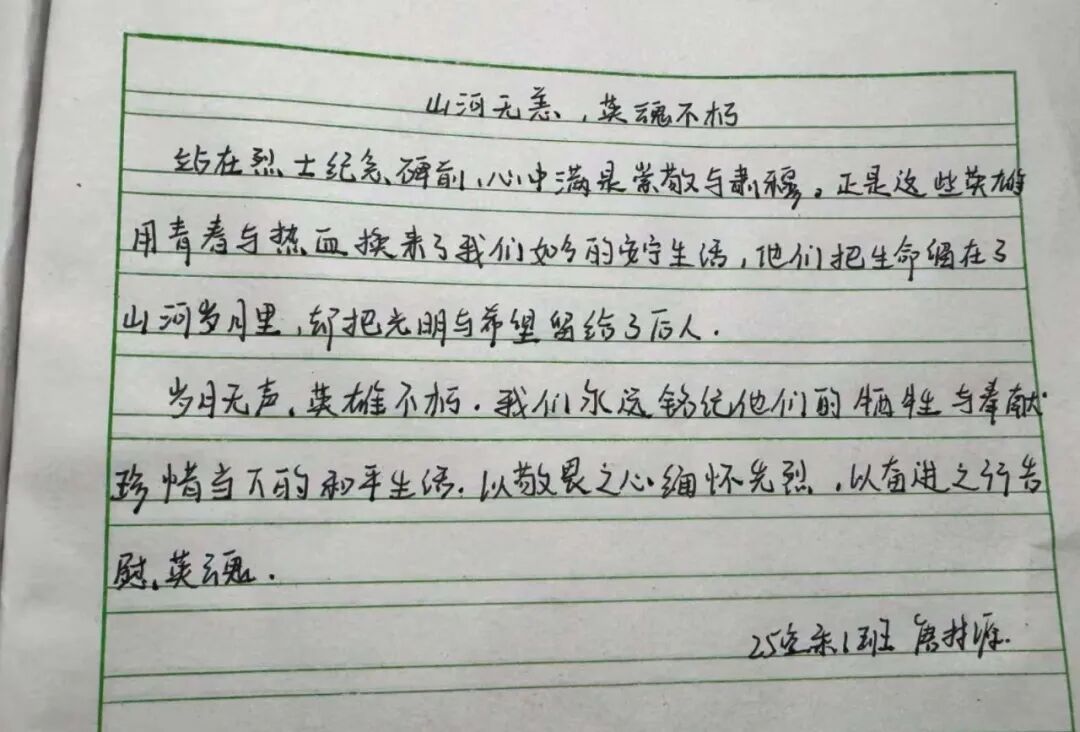 山河无恙，英魂不朽
站在烈士纪念碑前，心中满是崇敬与肃穆。正是这些英雄
用青春与热血换来了我们如今的安宁生活，他们把生命留在了
山河岁月里，却把光明与希望留给了后人.
岁月无声，英雄不朽.我们永远铭记他们的牺牲与奉献.
珍惜当下的和平生活.以敬畏之心缅怀先烈，以奋进之行告
慰英魂.
1班 唐